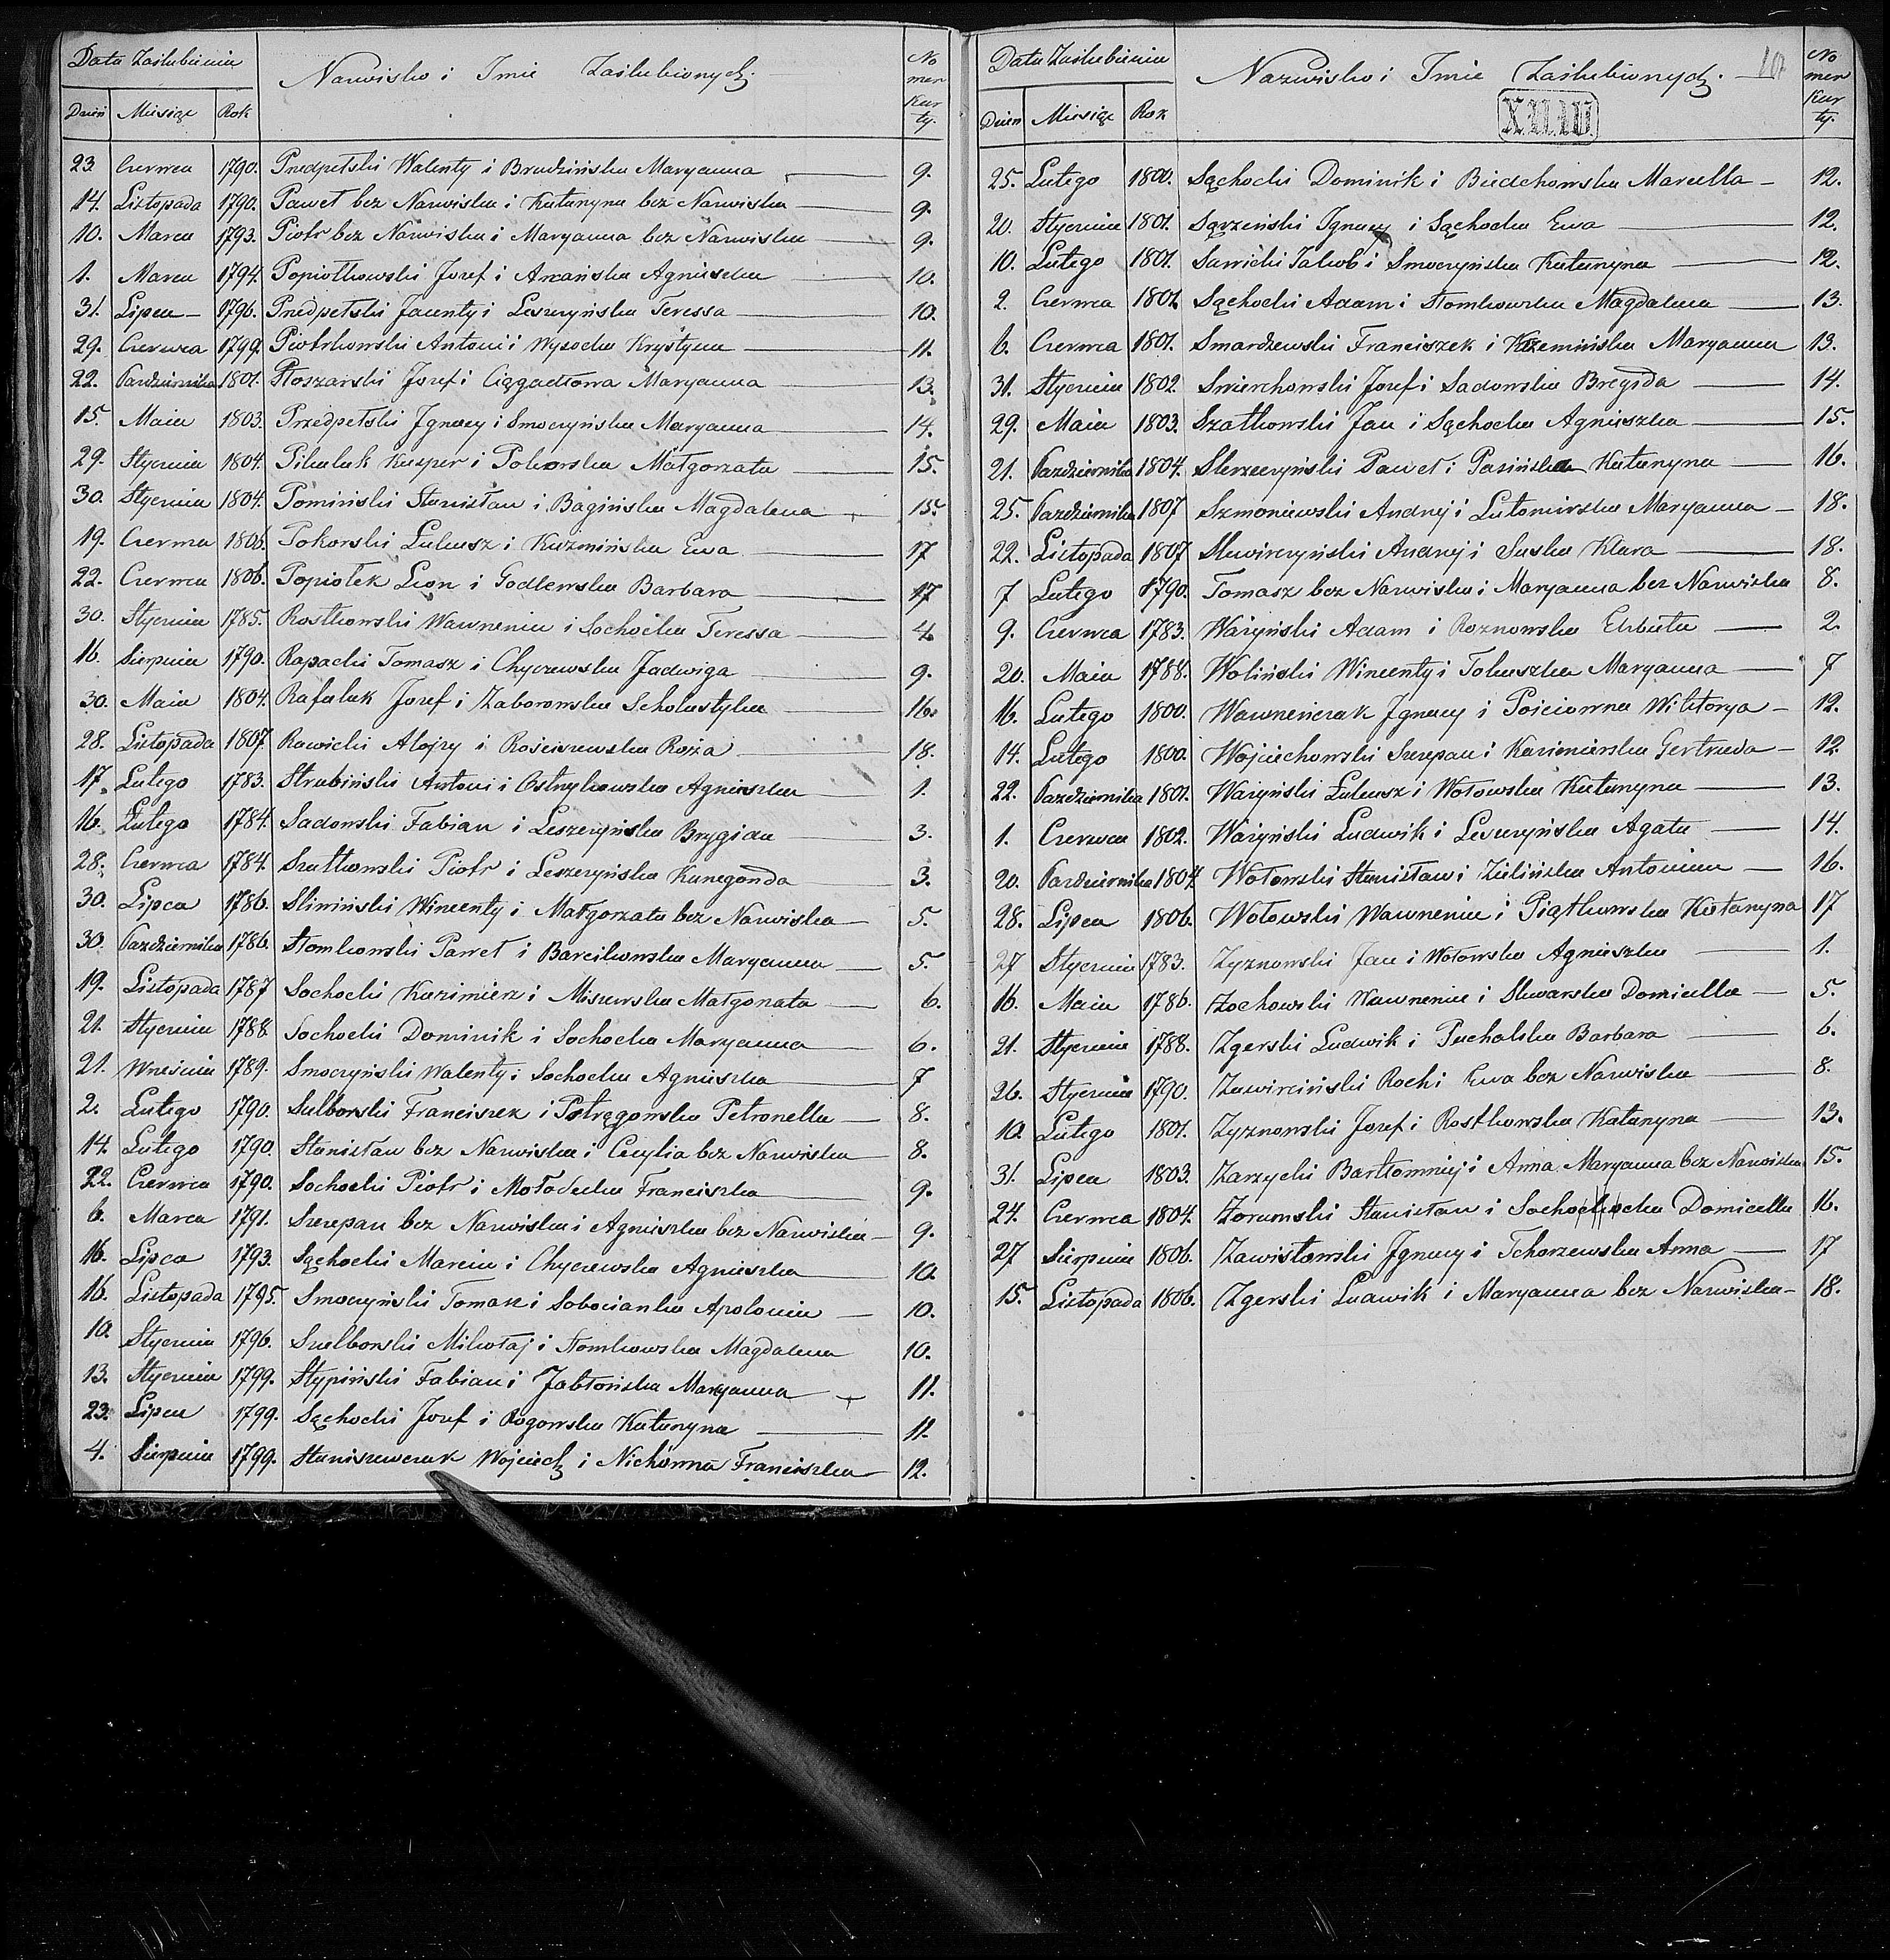 Data Zaślubienia
Nazwisko i Imie Zaślubionych.
No
mer
Kar
ty.
Dzień Miesiąc Rok
23 Czerwca 1790. Przedpełski Walenty i Brudzińska Maryanna 9.
14. Listopada 1790. Paweł bez Nazwiska i Katarzyna bez Nazwiska 9.
10. Marca 1793. Piotr bez Nazwiska i Maryanna bez Nazwiska 9.
1. Marca 1794. Popiołkowski Jozef i Agnieszka 10.
31. Lipca 1796. Przedpełski Jacenty i Leszczyńska Teressa 10.
29. Czerwca 1799. Piotrkowski Antoni i Wysocka Krystyna 11.
22. Pazdziernika 1801. Płoszarski Jozef i Maryanna 13.
15. Maia 1803. Przedpełski Jgnacy i Smoczyńska Maryanna 14.
29. Stycznia 1804. Pikulak Kasper i Pokorska Małgorzata 15.
30. Stycznia 1804. Pomiński Stanisław i Bagińska Magdalena 15.
19. Czerwca 1806. Pokorski Łukasz i Kuzmińska Ewa 17
22. Czerwca 1806. Popiołek Leon i Godlewska Barbara 17
30. Stycznia 1785. Rostkowski Wawrzeniec i Sochocka Teressa 4.
16. Sierpnia 1790. Rapacki Tomasz i Chyczewska Jadwiga 9.
30. Maia 1804. Rafalak Jozef i Zaborowska Scholastyka 16.
28. Listopada 1807. Rawicki Alojzy i Rościszewska Roża 18.
17. Lutego 1783. Strubiński Antoni i Ostrzykowska Agnieszka 1.
16. Lutego 1784. Sadowski Fabian i Leszczyńska Brygida 3.
28. Czerwca 1784. Szatkowski Piotr i Leszczyńska Kunegonda 3.
30. Lipca 1786. Sliwiński Wincenty i Małgorzata bez Nazwiska 5.
30. Pazdziernika 1786. Słomkowski Paweł i Barcikowska Maryanna 5.
19. Listopada 1787 Sochocki Kazimierz i Miszewska Małgorzata 6.
21. Stycznia 1788. Sochocki Dominik i Sochocka Maryanna 6.
21. Września 1789. Smoczyński Walenty i Sochocka Agnieszka 7
2. Lutego 1790. Sulborski Franciszek i Petronella 8.
14. Lutego 1790. Stanisław bez Nazwiska i Cecylia bez Nazwiska 8.
22. Czerwca 1790. Sochocki Piotr i Mołodecka Franciszka 9.
6. Marca 1791. Szczepan bez Nazwiska i Agnieszka bez Nazwiska 9.
16. Lipca 1793. Sąchocki Marcin i Chyczewska Agnieszka 10.
16. Listopada 1795. Smoczyński Tomasz i Sobocianka Apolonia 10.
10. Stycznia 1796. Szelborski Mikołaj i Słomkowska Magdalena 10.
13. Stycznia 1799. Stypiński Fabian i Jabłońska Maryanna 11.
23. Lipca 1799. Sąchocki Jozef i Rogowska Katarzyna 11.
4. Sierpnia 1799. Staniszewczak Wojciech i Nichówna Franciszka 12.
Data Zaślubienia
Nazwisko i Imie Zaślubionych.
No
mer
Kar
ty.
Dzien Miesiąc Rok
25. Lutego 1800. Sąchocki Dominik i Biedchowska Marcella 12.
20. Stycznia 1801. Sąrzeński Jgnacy i Sąchocka Ewa 12.
10. Lutego 1801. Sawicki Jakob i Smoczyńska Katarzyna 12.
2. Czerwca 1801. Sąchocki Adam i Słomkowska Magdalena 13.
6. Czerwca 1801. Smardzewski Franciszek i Krzemińska Maryanna 13.
31. Stycznia 1802. Swierchowski Jozef i Sadowska Bregida 14.
29. Maia 1803. Szatkowski Jan i Sąchocka Agnieszka 15.
21. Pazdziernika 1804. Skrzeczyński Paweł i Pasińska Katarzyna 16.
25. Pazdziernika 1807 Szmoniewski Andrzej i Lutomirska Maryanna 18.
22. Listopada 1807 Skwirczyński Andrzej i Suska Klara 18.
7 Lutego 1790. Tomasz bez Nazwiska i Maryanna bez Nazwiska 8.
9. Czerwca 1783.Ważyński Adam i Roznowska Elzbieta 2.
20. Maia 1788. Woliński Wincenty i Tokaszka Maryanna 7
16. Lutego 1800. Wawrzeńczak Jgnacy i Pościowna Wiktorya 12.
14. Lutego 1800. Wojciechowski Szczepan i Kazimierska Gertruda 12.
22. Pazdziernika 1801. Ważyński Łukasz i Wołowska Katarzyna 13.
1. Czerwca 1802. Ważyński Ludwik i Leszczyńska Agata 14.
20. Pazdziernika 1804 Wołowski Stanisław i Zielińska Antonina 16.
28. Lipca 1806. Wołowski Wawrzeniec i Piątkowska Katarzyna 17
27 Stycznia 1783. Zyznowski Jan i Wołowska Agnieszka 1.
16. Maia 1786. Zochowski Wawrzeniec i Skwarska Domicella 5.
21. Stycznia 1788. Zgerski Ludwik i Puchalska Barbara 6.
26. Stycznia 1790. Zawirciński Roch i Ewa bez Nazwiska 8.
10. Lutego 1801. Zyznowski Jozef i Rostkowska Katarzyna 13.
31. Lipca 1803. Zarzycki Bartłomniej i Anna Maryanna bez Nazwiska 15.
24. Czerwca 1804. Zorawski Stanisław i Domicella 16.
27 Sierpnia 1806. Zawistowski Jgnacy i Tchorzewska Anna 17
15. Listopada 1806. Zgerski Ludwik i Maryanna bez Nazwiska 18.